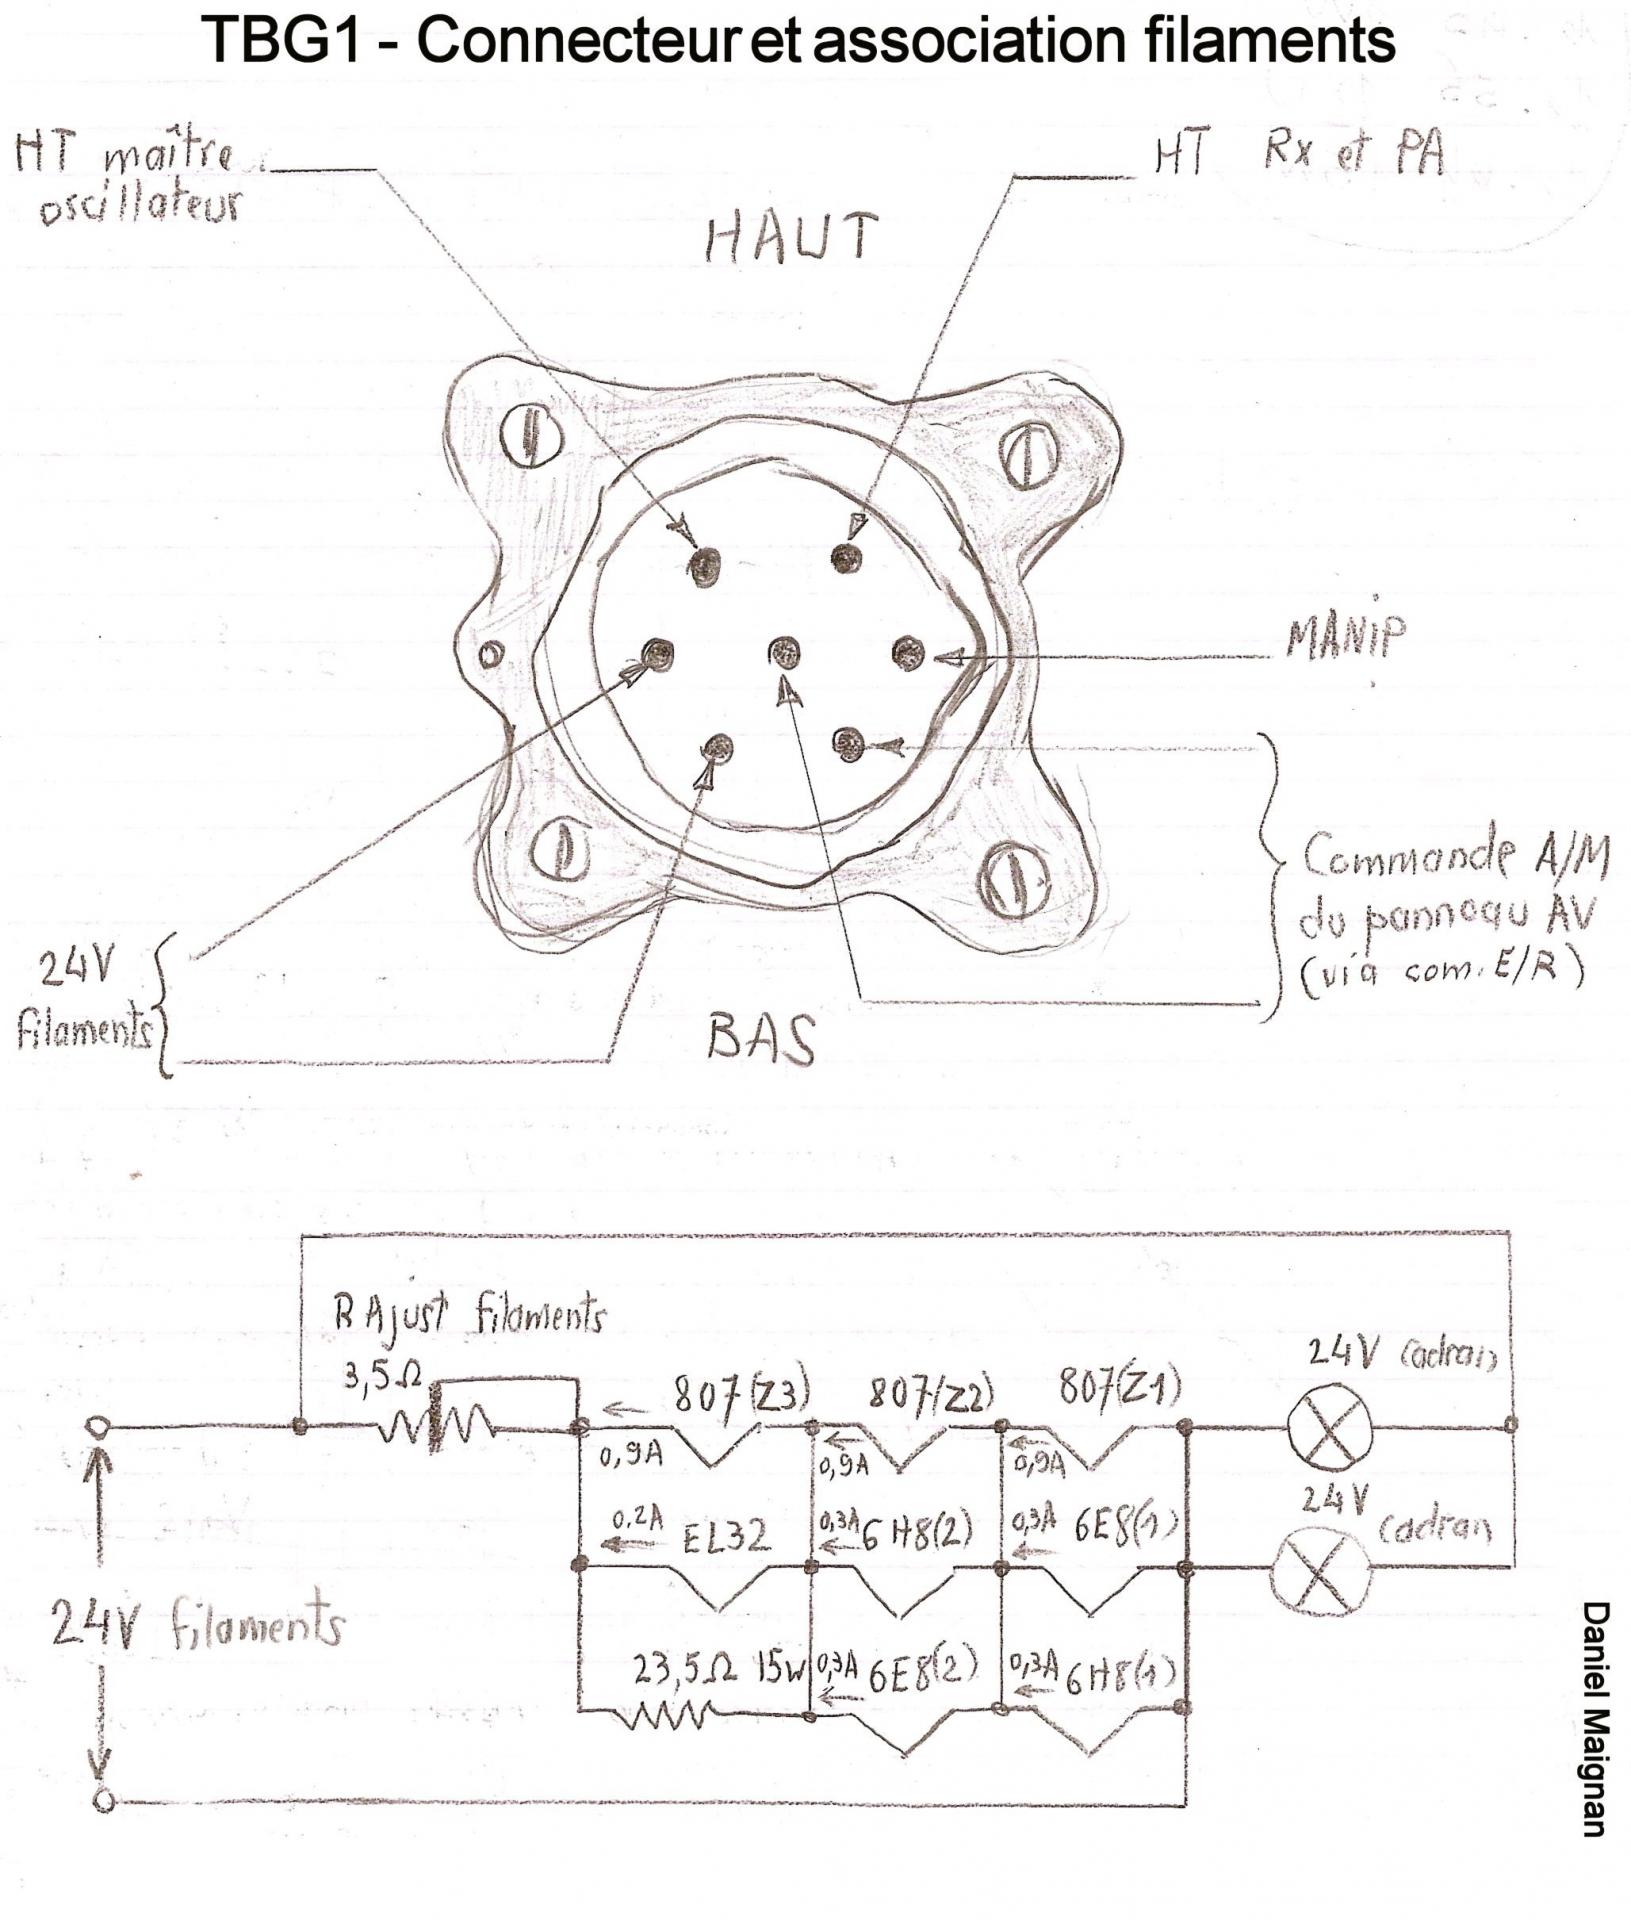 TBG1 - Connecteur et association filaments
HT maître
oscillateur
HT Rx et PA
HAUT
MANIP
Commande A/M
du panneau AV
(via com. E/R)
24V
filaments
BAS
R Ajust filaments
3,5Ω
807(Z3)
807(Z2)
807(Z1)
24V cadran
0,9A
0,9A
0,9A
0,2A
EL32
0,3A
6H8(2)
0,3A
6E8(1)
24V
cadran
24V filaments
23,5Ω 15W
0,3A
6E8(2)
0,3A
6H8(1)
Daniel Maignan